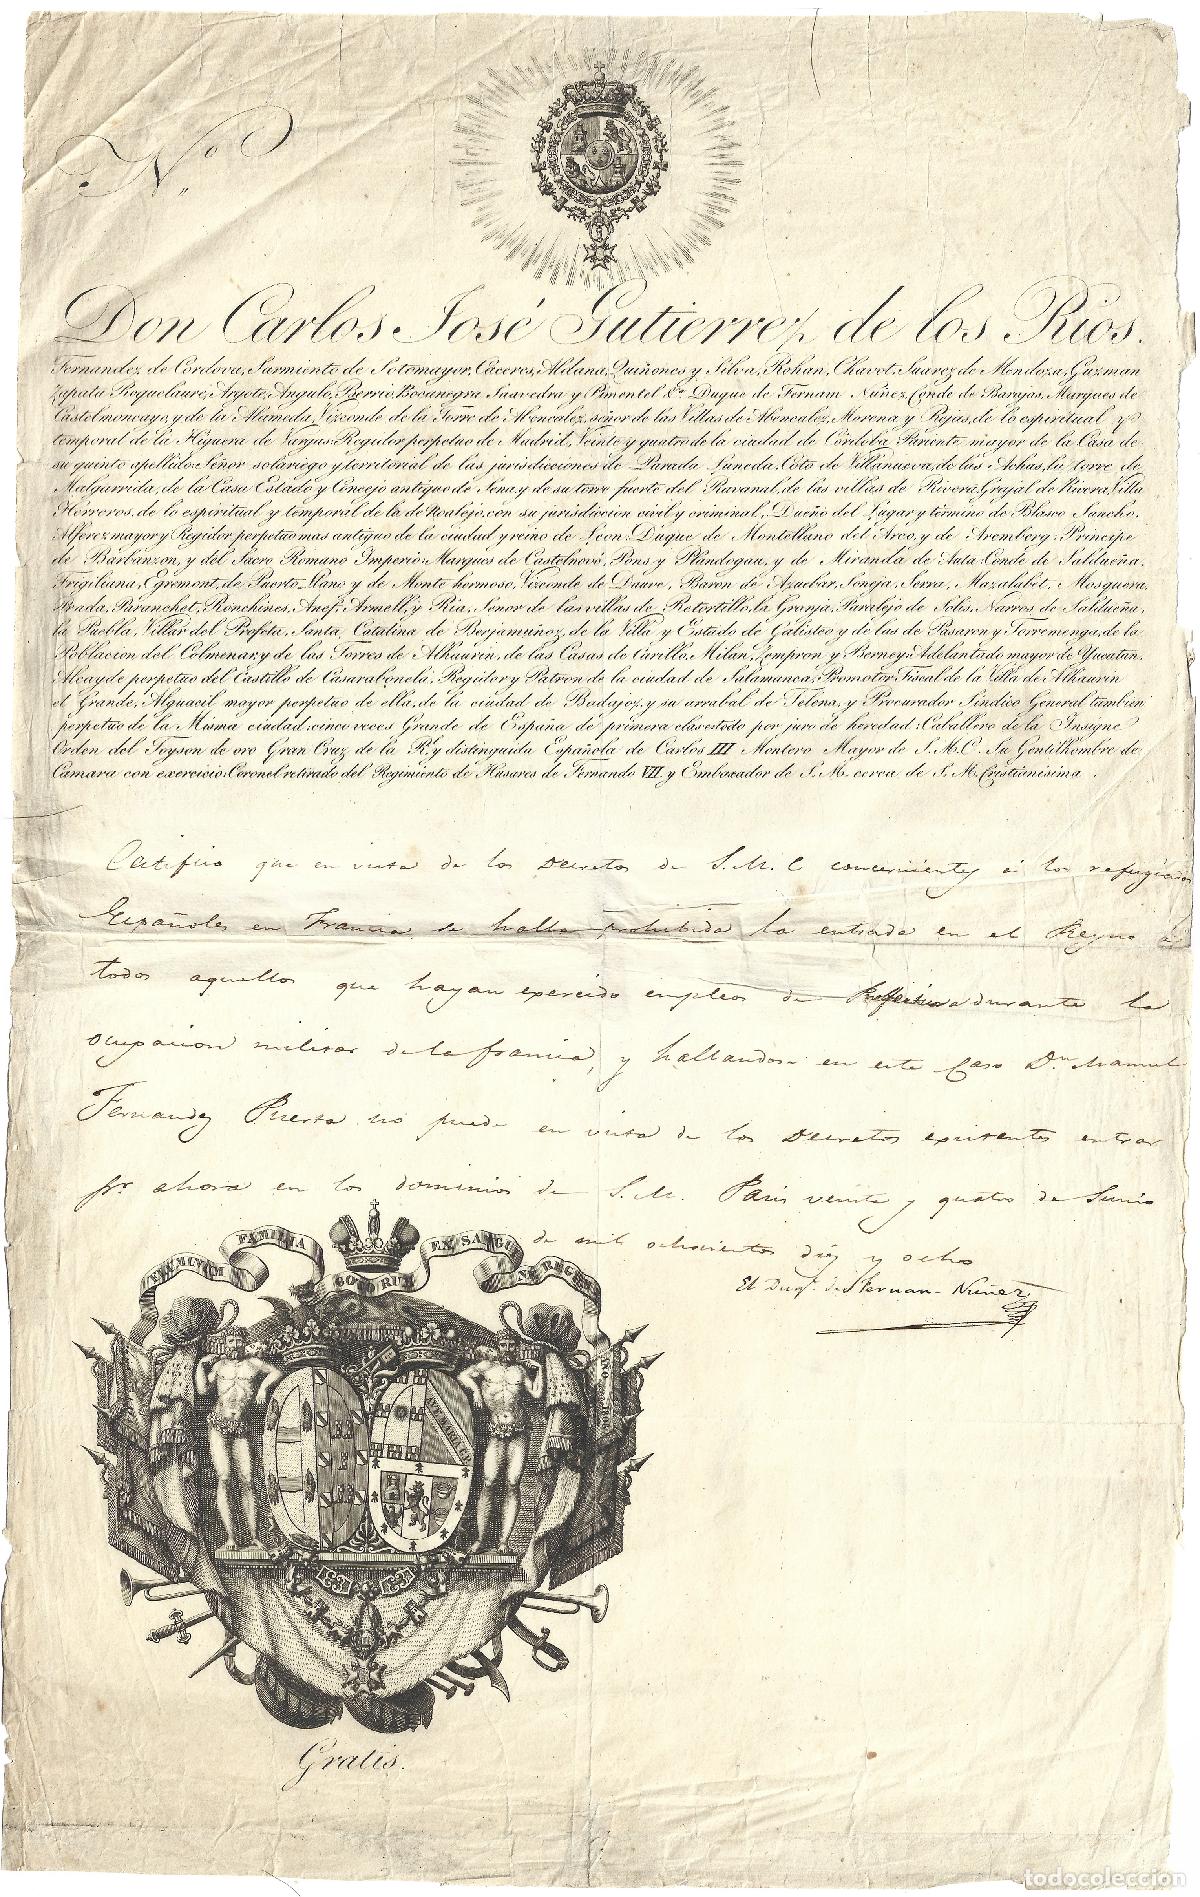 N.º
Don Carlos José Gutierrez de los Rios.
Fernandez de Cordova, Sarmiento de Sotomayor, Cáceres, Aldana, Quiñones y Silva, Rohan, Chavot, Suarez de Mendoza, Guzman
Zapata Roquelaure, Argote, Angulo, Bocanegra Saavedra y Pimentel &.ª Duque de Fernam Núñez, Conde de Barajas, Marques de
Castelmoncayo, y de la Alameda, Vizconde de la Torre de Abencalez, señor de las Villas de Abencalez, Morena y Rojas, de lo espiritual y
temporal de la Higuera de Vargas: Regidor perpetuo de Madrid, Veinte y quatro de la ciudad de Córdoba Pariente mayor de la Casa de
su quinto apellido: Señor solariego y territorial de las jurisdicciones de Parada Luneda, Coto de Villanueva, de las Achas, la torre de
Malgarrida, de la Casa Estado y Concejo antiguo de Sena, y de su torre fuerte del Ravanal, de las villas de Rivera, Grajal de Rivera, Villa
Horreros, de lo espiritual y temporal de la de Nvalejo, con su jurisdiccion civil y criminal, Dueño del Lugar y término de Blasco Sancho,
Alferez mayor y Regidor perpetuo mas antiguo de la ciudad y reino de Leon: Duque de Montellano del Arco, y de Aremberg: Principe
de Barbanzon, y del Sacro Romano Imperio: Marques de Castelnovo, Pons y Plandogau, y de Miranda de Auta: Conde de Saldueña,
Frigiliana, Egremont, de Puerto-Llano y de Monte hermoso, Vizconde de Dauve, Baron de Azuebar, Soneja, Serra, Mazalabét, Mosquera,
Benda, Branchet, Ronchines, Anef, Armell, y Ria, Señor de las villas de Retortillo, la Granja, Paralejo de Solis, Narros de Saldueña,
la Puebla, Villar del Profeta, Santa Catalina de Berjamuñoz, de la Villa y Estado de Galisteo y de las de Pasaron y Torremenga, de la
Poblacion del Colmenar, y de las Torres de Alhaurin, de las Casas de Carillo, Milan, Lompron y Berney: Adelantado mayor de Yucatan,
Alcayde perpetuo del Castillo de Casarabonela, Regidor y Patron de la ciudad de Salamanca: Promotor Fiscal de la Villa de Alhaurin
el Grande, Alguacil mayor perpetuo de ella, de la ciudad de Badajoz, y su arrabal de Telena, y Procurador Sindico General tambien
perpetuo de la Misma ciudad: cinco veces Grande de España de primera clase: todo por juro de heredad: Caballero de la Insigne
Orden del Toyson de oro Gran Cruz de la R.l y distinguida Española de Carlos III Montero Mayor de S.M.C. Su Gentilhombre de
Camara con exercicio: Coronel retirado del Regimiento de Husares de Fernando VII. y Embaxador de S.M. cerca de S.M. Cristianisima.
Certifico que en vista de los Decretos de S.M.C concernientes á los refugiados
Españoles en Francia, se halla prohibida la entrada en el Reyno a
todos aquellos que hayan exercido empleos de durante la
ocupacion militar de la francia, y hallandose en este Caso D.n Manuel
Fernandez Puerta no puede en vista de los Decretos existentes entrar
p.r ahora en los dominios de S.M. Paris veinte y quatro de Junio
de mil ochocientos diez y ocho
El Duq.e de Fernan-Nuñez
FAMILIA
GOTORUM
EX SANGUINE REGUM
AVE MARIA
Gratis.
todocoleccion